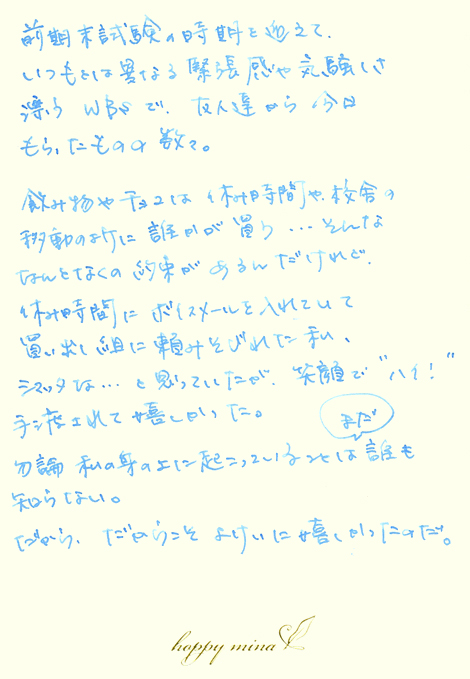 前期末試験の時期を迎えて、
いつもとは異なる緊張感や気騒しさ
漂う WBSで、友人達から今日
もらったものの数々。
飲み物やチョコは休み時間や校舎の
移動のときに誰かが買う…そんな
なんとなくの約束があるんだけれど、
休み時間にボイスメールを入れていて
買い出し組に頼みそびれた私、
シマッタな…と思っていたが、笑顔で"ハイ!"
手渡されて嬉しかった。
まだ
勿論 私の身の上に起こっていることは誰も
知らない。
だから、だからこそ よけいに嬉しかったのだ。
happy mina